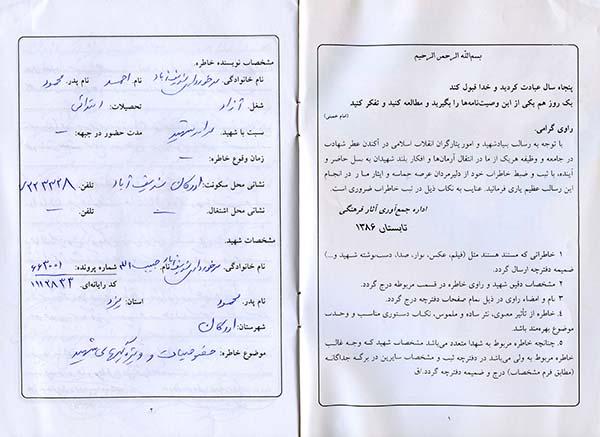 بسم‌الله الرحمن الرحیم
پنجاه سال عبادت کردید و خدا قبول کند
یک روز هم یکی از این وصیت‌نامه‌ها را بگیرید و مطالعه کنید و تفکر کنید
(امام خمینی)
راوی گرامی،
با توجه به رسالت بنیادشهید و امور ایثارگران انقلاب اسلامی در آکندن عطر شهادت
در جامعه و وظیفه هریک از ما در انتقال آرمان‌ها و افکار بلند شهیدان به نسل حاضر و
آینده، با ثبت و ضبط خاطرات خود از دلیرمردان عرصه حماسه و ایثار ما را در انجام
این رسالت عظیم یاری فرمائید. عنایت به نکات ذیل در ثبت خاطرات ضروری است.
اداره جمع‌آوری آثار فرهنگی
تابستان ۱۳۸۶
۱ خاطراتی که مستند هستند مثل (فیلم، عکس، نوار، صدا، دست‌نوشته شهید و...)
ضمیمه دفترچه ارسال گردد.
۲ مشخصات دقیق شهید و راوی خاطره در قسمت مربوطه درج گردد.
۳ نام و امضاء راوی در ذیل تمام صفحات دفترچه درج گردد.
۴ خاطره از تأثیر معنوی، نثر ساده و ملموس، نکات دستوری مناسب و وحدت
موضوع بهره‌مند باشد.
۵ چنانچه خاطره مربوط به شهدا متعدد می‌باشد مشخصات شهید که وجه غالب
خاطره مربوط به ولی می‌باشد در دفترچه ثبت و مشخصات سایرین در برگه جداگانه
(مطابق فرم مشخصات) درج و ضمیمه دفترچه گردد./ق
۱
مشخصات نویسنده خاطره:
نام خانوادگی: نام: احمد نام پدر: محمود
شغل: آزاد تحصیلات: ابتدائی
نسبت با شهید: برادر شهید مدت حضور در جبهه: –
زمان وقوع خاطره: –
نشانی محل سکونت: اردکان شریف آباد تلفن:
نشانی محل اشتغال: – تلفن: –
مشخصات شهید:
نام خانوادگی: نام: حبیب اله شماره پرونده: ۶۶۳۰۰۱
کد رایانه‌ای: ۱۱۱۲۸۳۳
نام پدر: محمود استان: یزد
شهرستان: اردکان
موضوع خاطره: خصوصیات و ویژگیهای شهید
۲